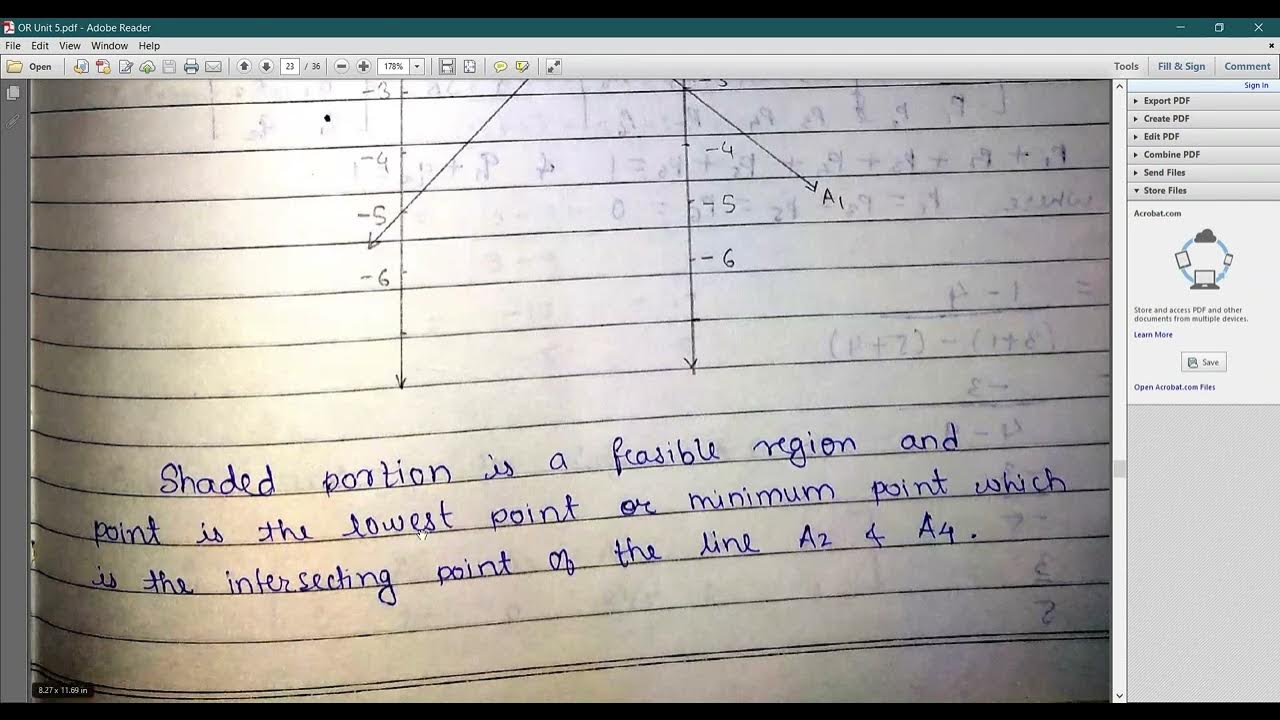 OR Unit 5.pdf - Adobe Reader
File Edit View Window Help
Open 23 / 36 178% Tools Fill & Sign Comment
Sign In
Export PDF
Create PDF
Edit PDF
Combine PDF
Send Files
Store Files
Acrobat.com
Store and access PDF and other
documents from multiple devices.
Learn More
Save
Open Acrobat.com Files
-3 -3
-4 -4
-5 -5
-6 -6
A1
Shaded portion is a feasible region and
point is the lowest point or minimum point which
is the intersecting point of the line A2 & A4.
8.27 x 11.69 in